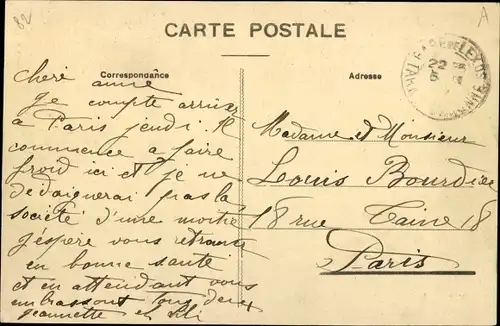 82
A
CARTE POSTALE
Correspondance
Adresse
chère amie
je compte arriver
à Paris jeudi. Il
commence a faire
froid ici et je ne
dedaignerai pas la
société d'une
j'éspère vous retrouver
en bonne santé
et en attendant vous
embrassent tous deux
jeannette et
Madame et Monsieur
Louis Bourdier
18 rue Taine 18
Paris
22